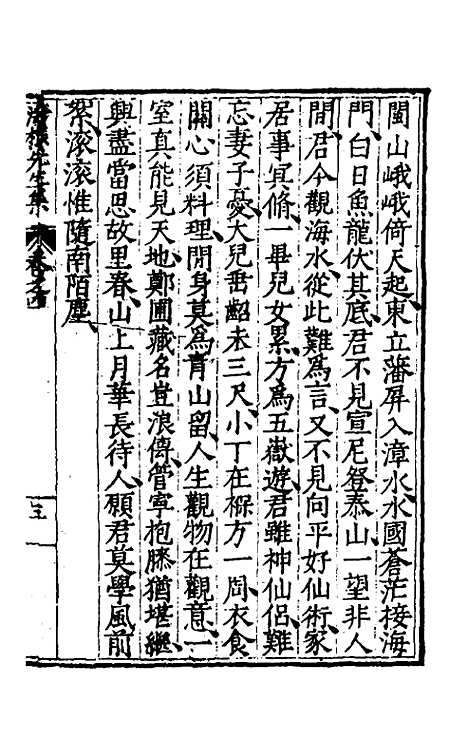 閩山峨峨倚天起東立藩屏入漳水水國蒼茫接海
門白日魚龍伏其底君不見宣尼登泰山一望非人
間君今觀海水從此難爲言又不見向平好仙術家
居事冥脩一畢兒女累方爲五嶽遊君雖神仙侶難
忘妻子憂大兒壵齠未三尺小丁在褓方一周衣食
關心須料理閒身莫爲青山留人生觀物在觀意一
室真能見天地鄭圃藏名豈浪傳管寧抱膝猶堪繼
興盡當思故里春山上月華長待人願君莫學風前
絮滾滾惟隨南陌塵
先生集
三